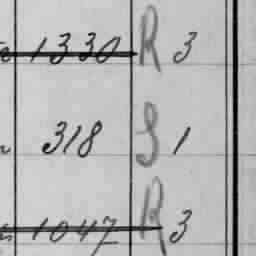 1330 R 3
318 S 1
1047 R 3